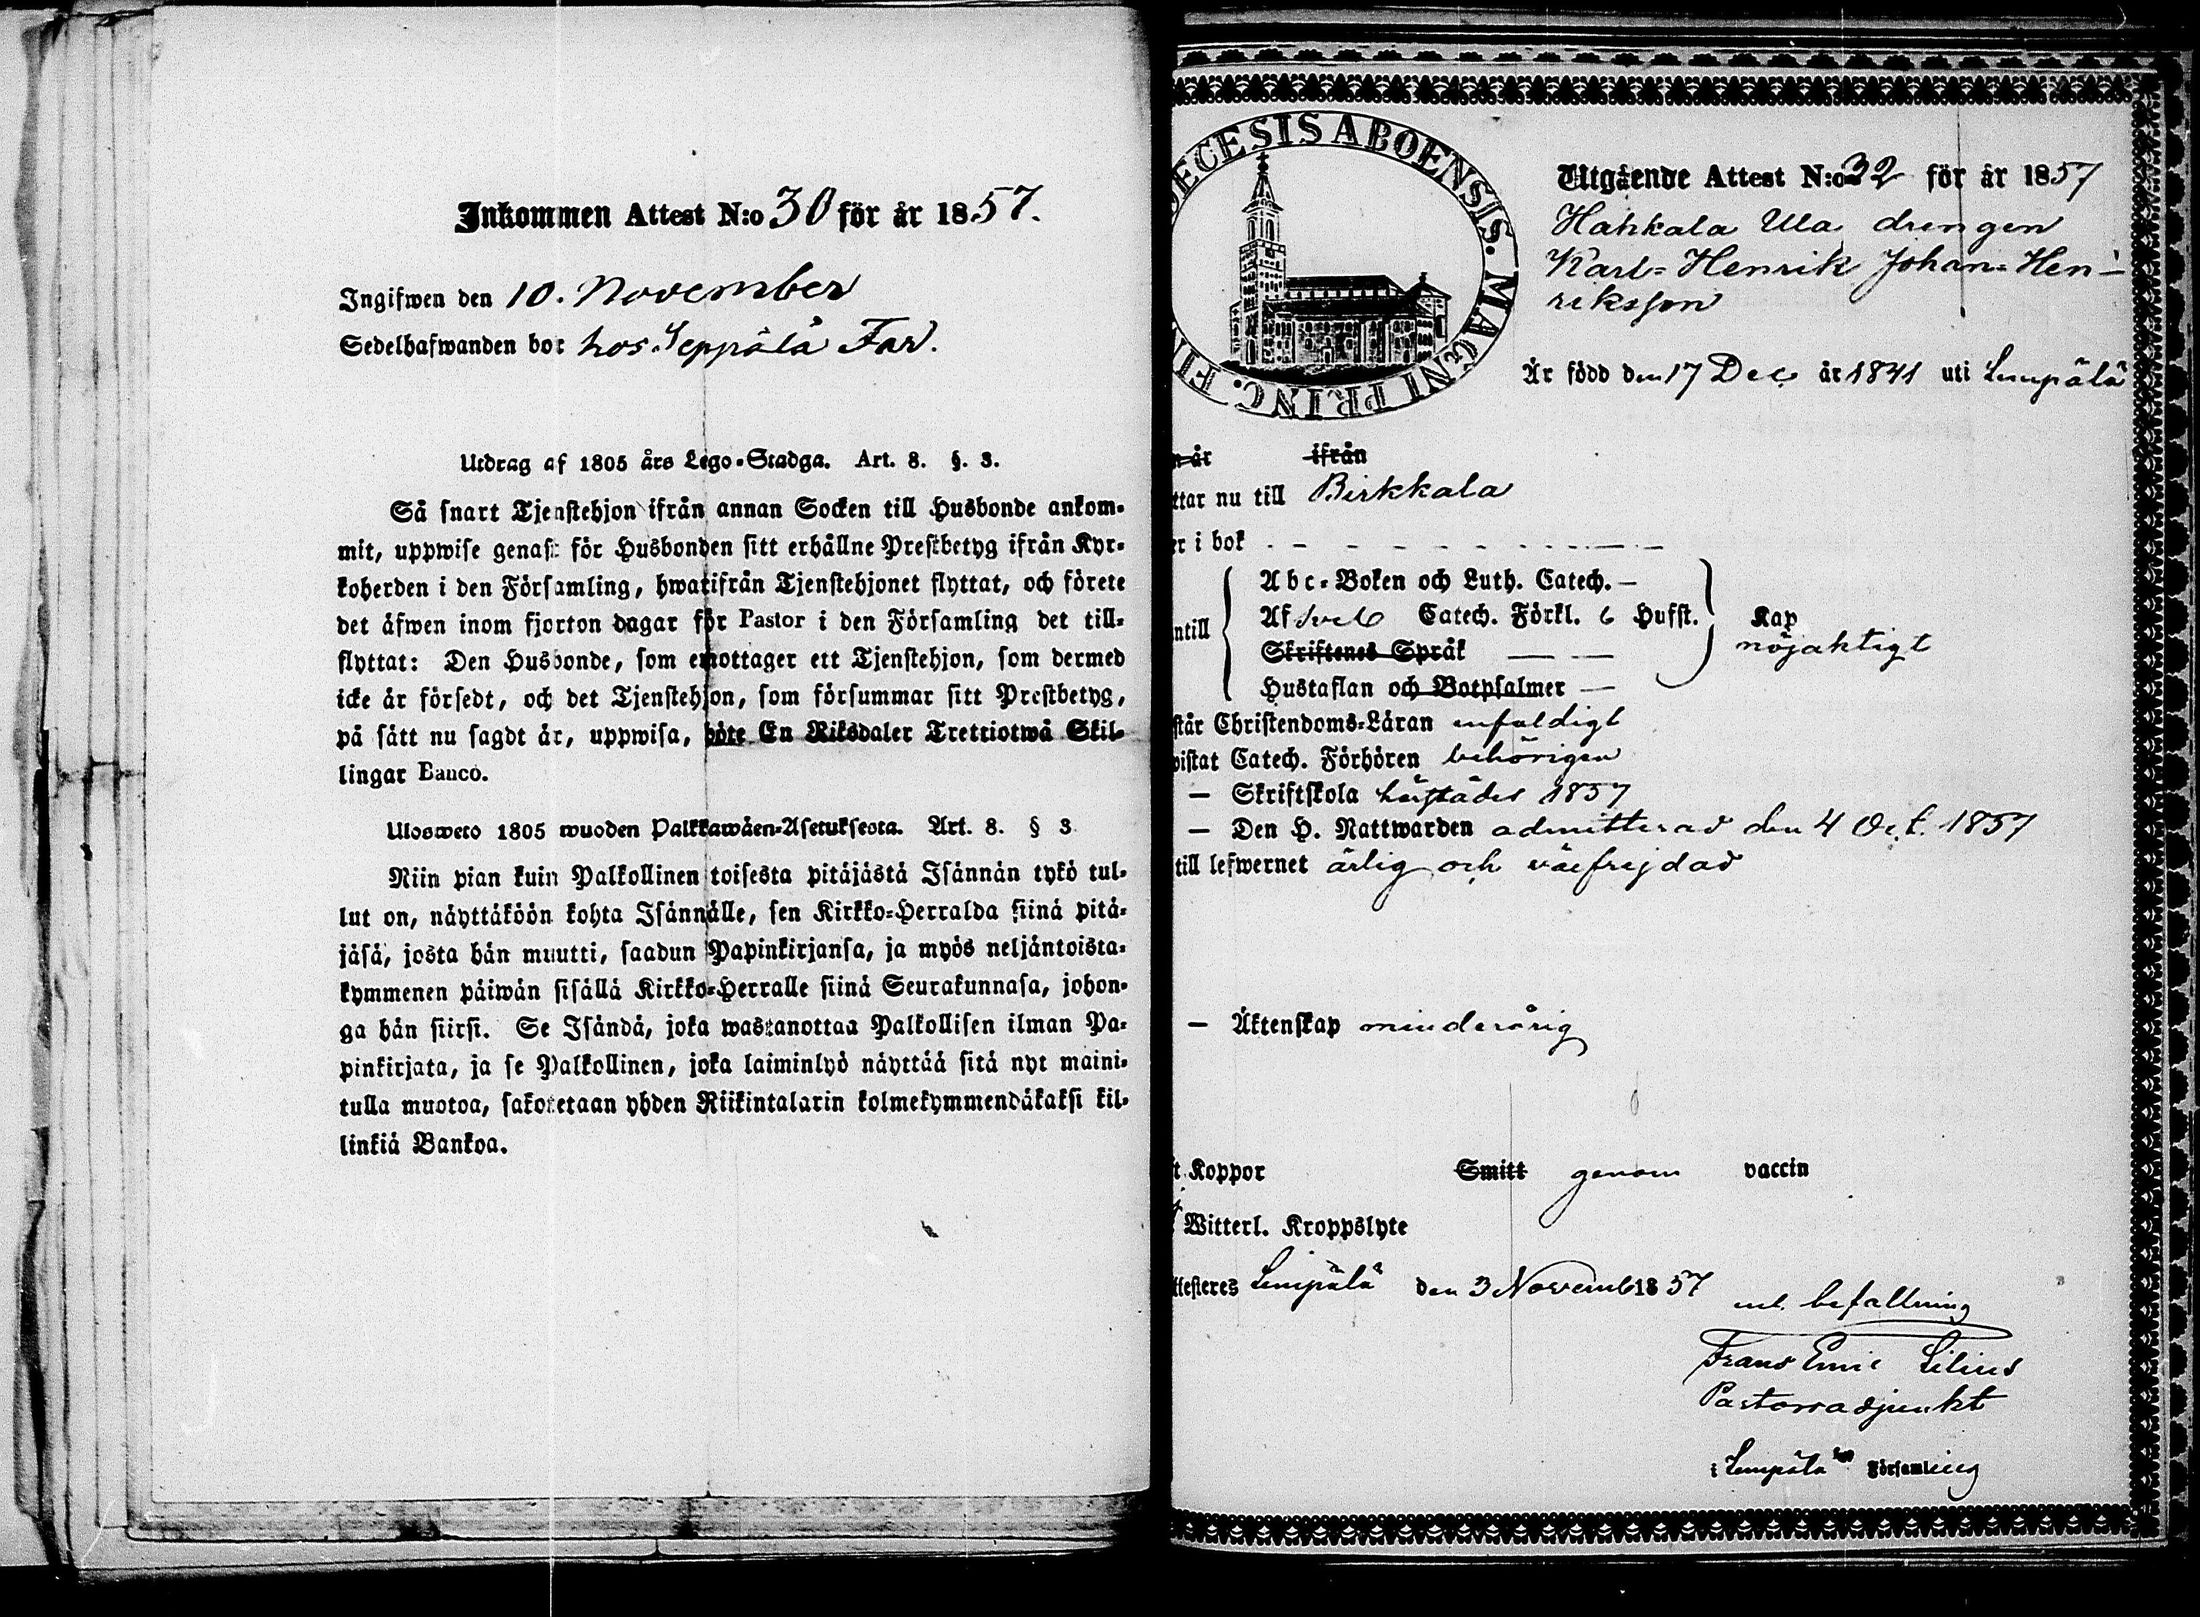 Inkommen Attest N:o 30 för år 1857.
Ingifwen den 10. November
Sedelhafwanden bor hos Seppälä Far.
Utdrag af 1805 års Lego-Stadga. Art. 8. §. 3.
Så snart Tjenstehjon ifrån annan Socken till Husbonde ankom-
mit, uppwise genast för Husbonden sitt erhållne Prestbetyg ifrån Kyr-
koherden i den Församling, hwarifrån Tjenstehjonet flyttat, och förete
det äfwen inom fjorton dagar för Pastor i den Församling det till-
flyttat: Den Husbonde, som emottager ett Tjenstehjon, som dermed
icke är försedt, och det Tjenstehjon, som försummar sitt Prestbetyg,
på sätt nu sagdt är, uppwisa, böte En Riksdaler Trettiotwå Skil-
lingar Banco.
Ulosweto 1805 wuoden Palkkawäen-Asetuksesta. Art. 8. § 3
Niin pian kuin Palkollinen toisesta pitäjästä Isännän tykö tul-
lut on, näyttäköön kohta Isännälle, sen Kirkko-Herralda siinä pitä-
jäsä, josta hän muutti, saadun Papinkirjansa, ja myös neljäntoista-
kymmenen päiwän sisällä Kirkko-Herralle siinä Seurakunnasa, johon-
ga hän siirsi. Se Isändä, joka wastanottaa Palkollisen ilman Pa-
pinkirjata, ja se Palkollinen, joka laiminlyö näyttää sitä nyt maini-
tulla muotoa, sakotetaan yhden Riikintalarin kolmekymmendäkaksi kil-
linkiä Bankoa.
ECESIS ABOENSIS. MAGNI PRINC. FI
Utgående Attest N:o 32 för år 1857
Hahkala Ula drengen
Karl-Henrik Johan-Hen-
riksson
Är född den 17 Dec. år 1841 uti Lempälä
n år ifrån
ttar nu till Birkkala
er i bok
Abc-Boken och Luth. Catech.
Af Sveb Catech. Förkl. 6 Hufst. Kap
ntill
Skriftenes Språk nöjaktigt
Hustaflan och Botpsalmer
står Christendoms-Läran enfaldigt
wistat Catech. Förhören behörigen
— Skriftskola härstädes 1857
— Den H. Nattwarden admitterad den 4 Oct. 1857
till lefwernet ärlig och väl frejdad
— Äktenskap minderårig
t Koppor Smitt genom vaccin
Witterl. Kroppslyte
ttesteres Lempälä den 3 Novemb 1857
enl. befallning
Frans Emil Lilius
Pastorsadjunkt
i Lempälä Församling